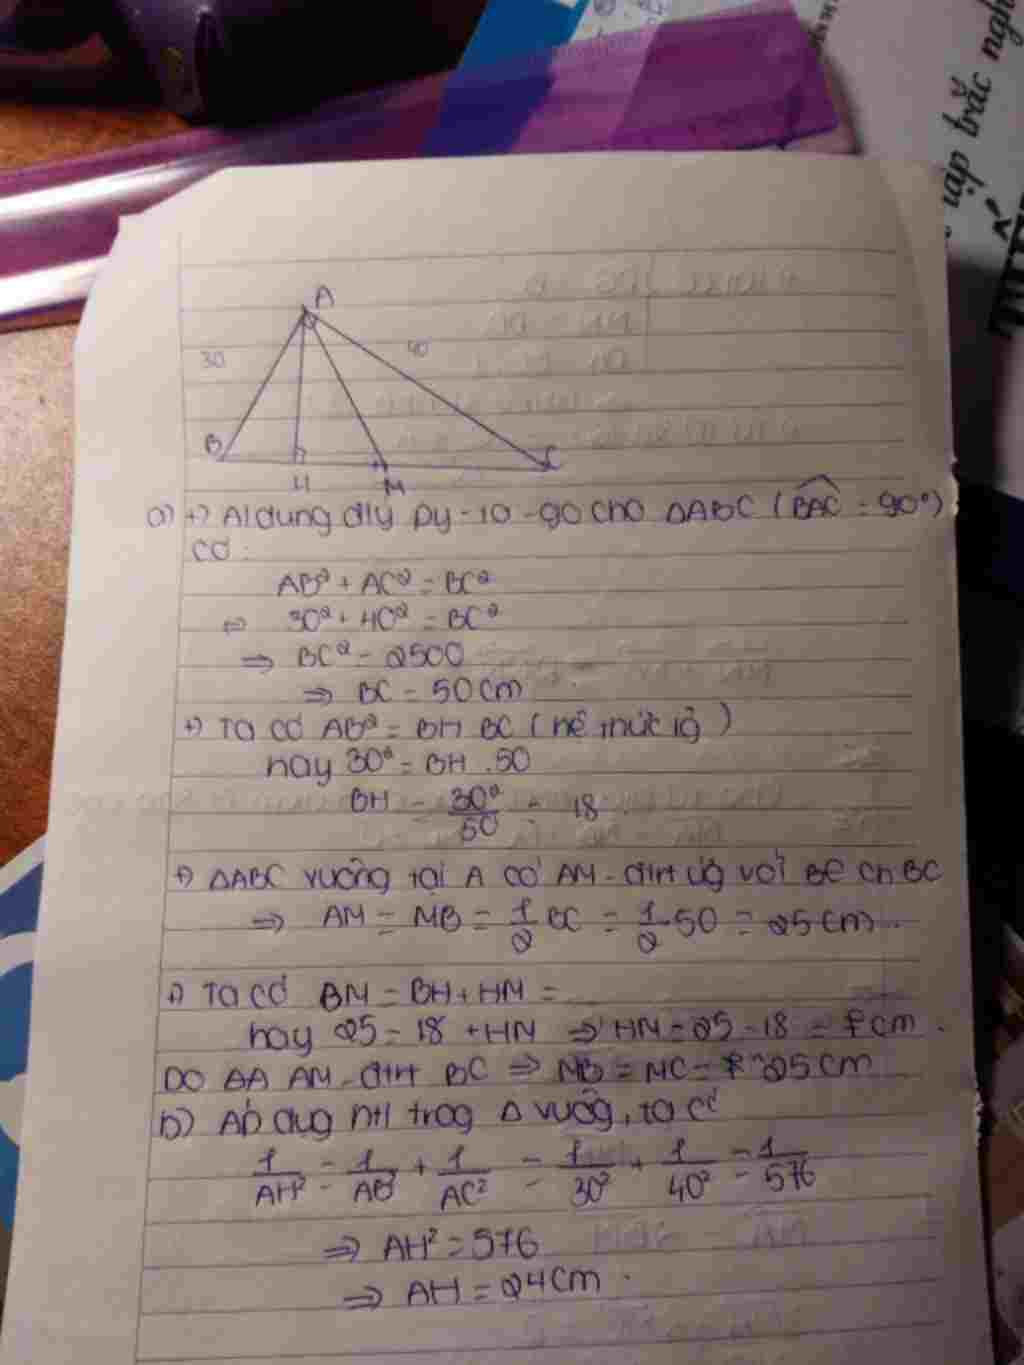 tập trắc ngh
A
30
40
B
H
M
C
a) +) Al dung đly Py-ta-go cho ΔABC (BAC = 90°)
có:
AB² + AC² = BC²
⇔ 30² + 40² = BC²
⇒ BC² = 2500
⇒ BC = 50cm
+) Ta có AB² = BH BC (hệ thức lg)
hay 30² = BH . 50
BH = 30²/50 = 18
+) ΔABC vuông tại A có AM-đtrt ứg với BE ch BC
⇒ AM = MB = 1/2 BC = 1/2 50 = 25cm
+) Ta có BM = BH + HM =
hay 25 = 18 + HM ⇒ HM = 25 - 18 = 7cm.
DO AM-đtrt BC ⇒ MB = MC = 25cm
b) Áp dụg htl trog Δ vuôg, ta có
1/AH² = 1/AB² + 1/AC² = 1/30² + 1/40² = 1/576
⇒ AH² = 576
⇒ AH = 24cm.